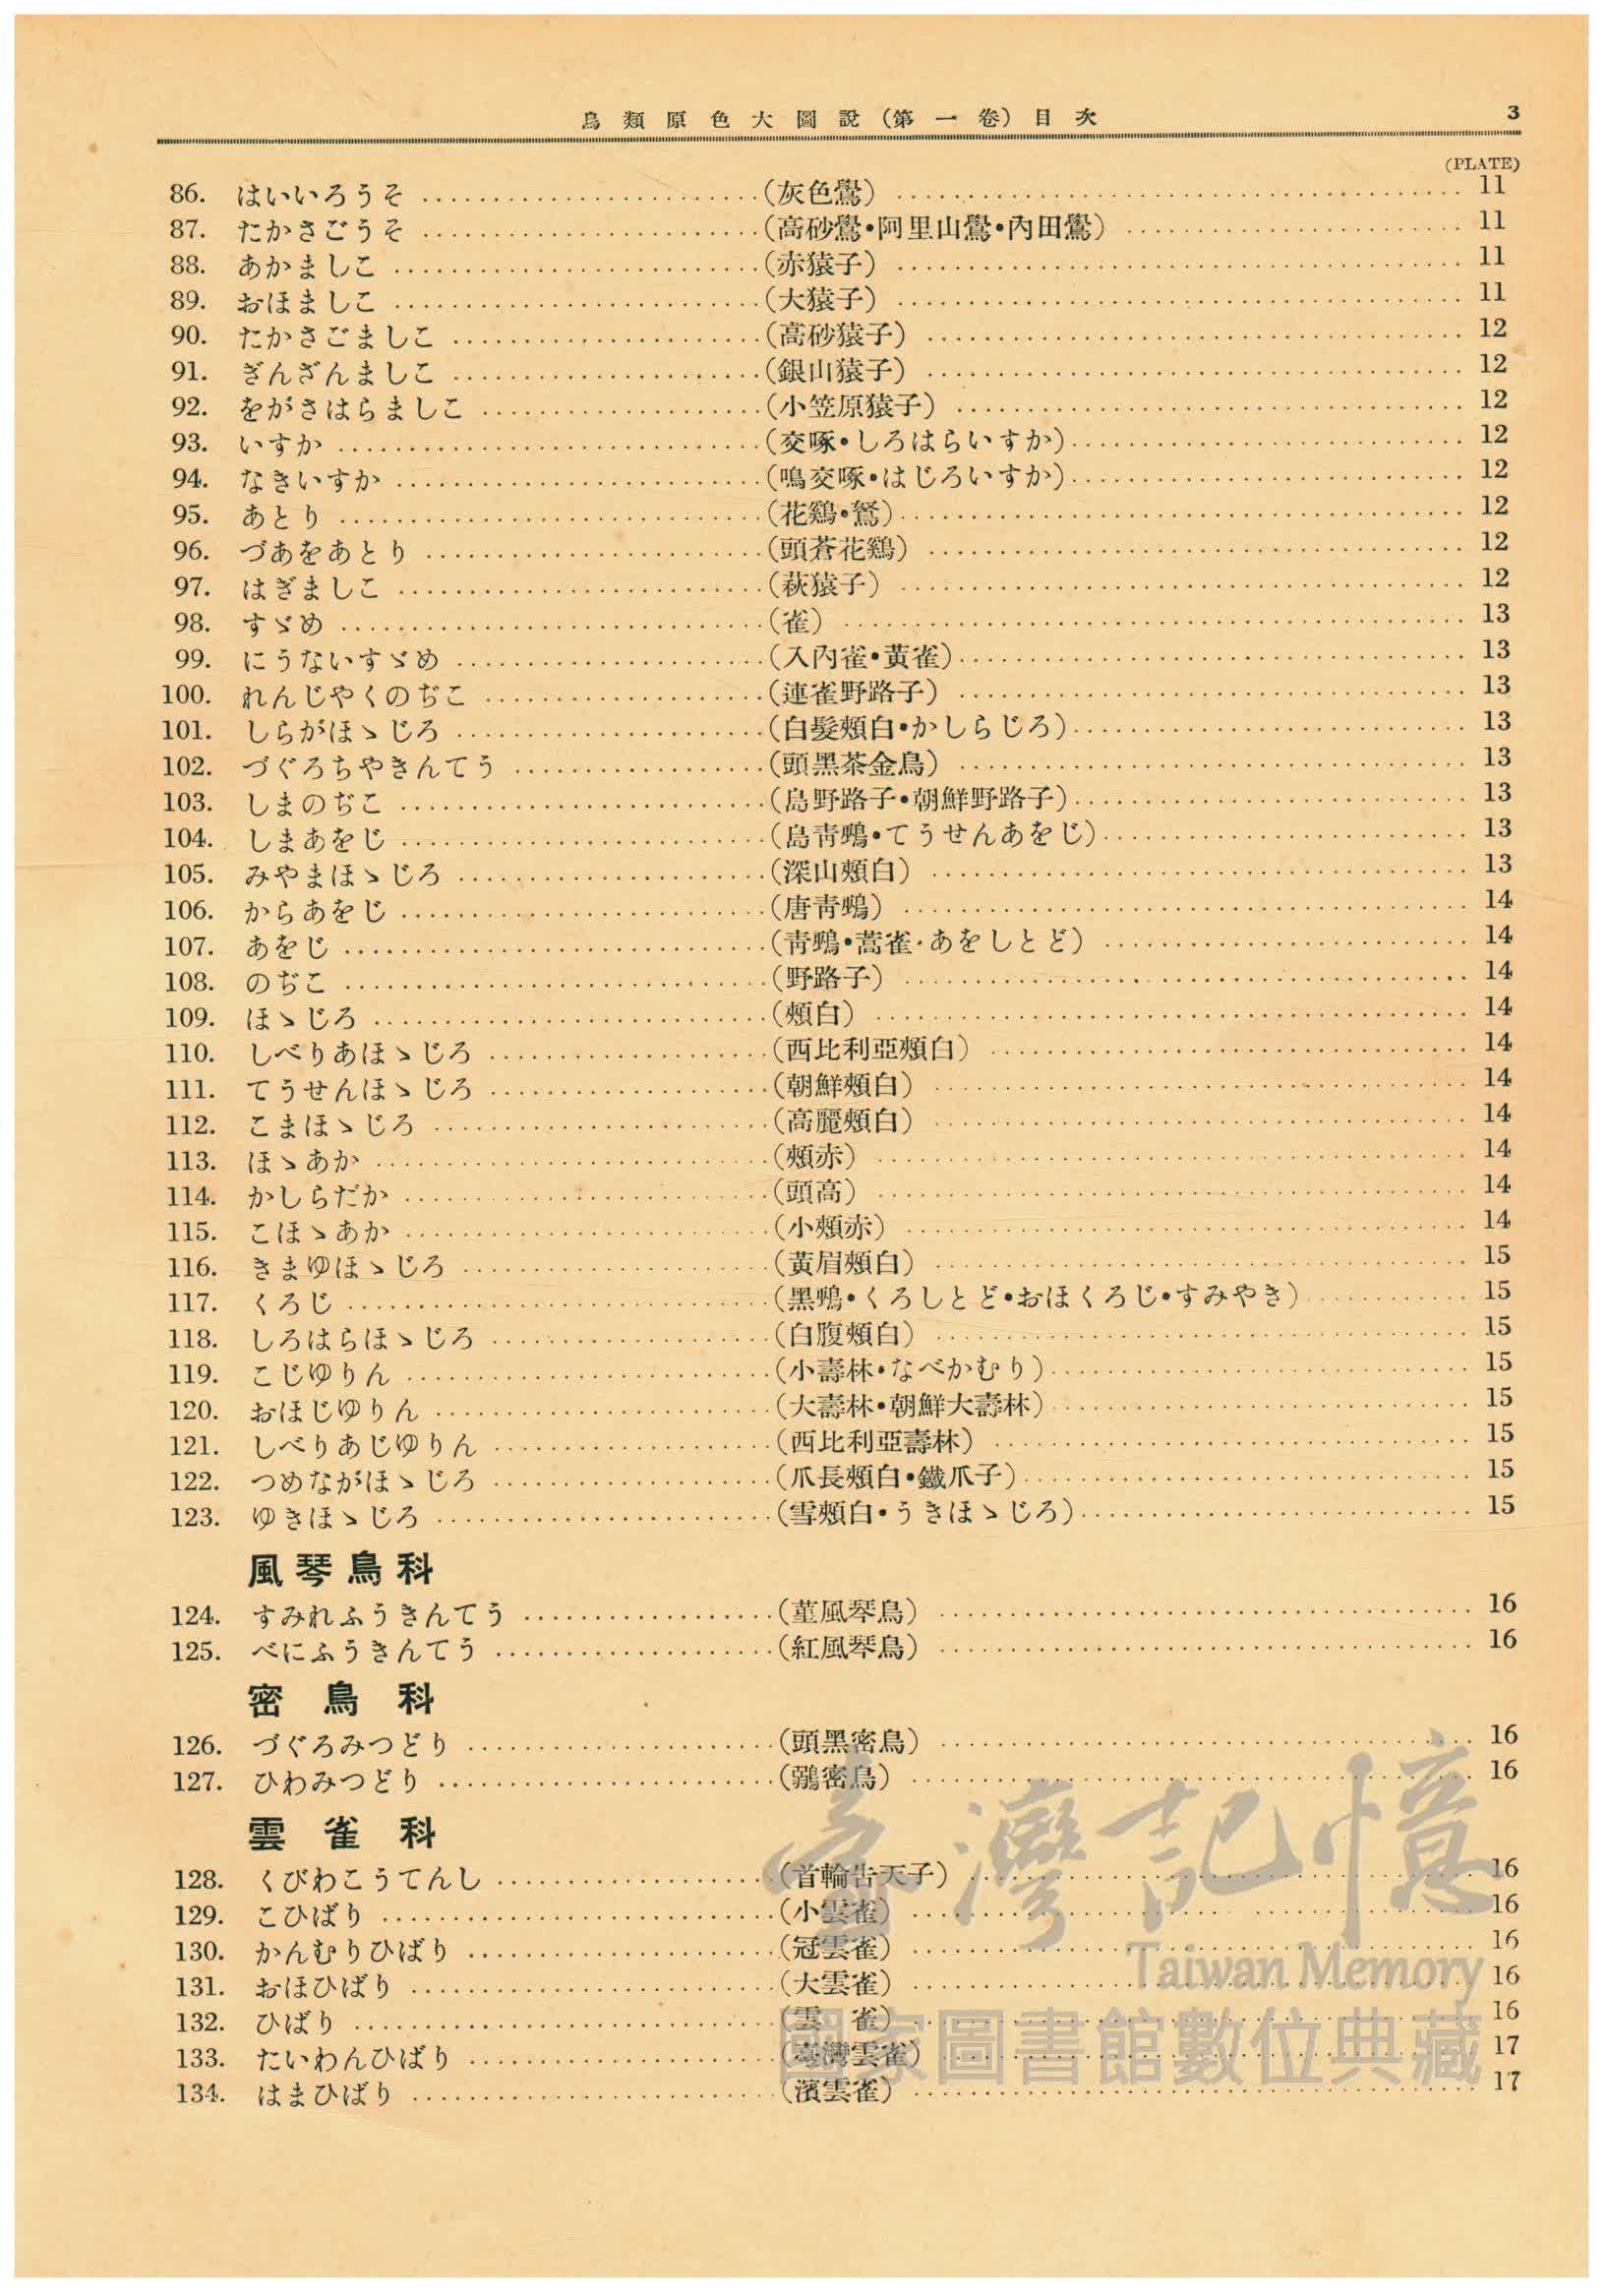 鳥類原色大圖說（第一卷）目次 3
(PLATE)
86. はいいろうそ ……（灰色鷽） …… 11
87. たかさごうそ ……（高砂鷽•阿里山鷽•內田鷽） …… 11
88. あかましこ ……（赤猿子） …… 11
89. おほましこ ……（大猿子） …… 11
90. たかさごましこ ……（高砂猿子） …… 12
91. ぎんざんましこ ……（銀山猿子） …… 12
92. をがさはらましこ ……（小笠原猿子） …… 12
93. いすか ……（交啄•しろはらいすか） …… 12
94. なきいすか ……（鳴交啄•はじろいすか） …… 12
95. あとり ……（花鷄•） …… 12
96. づあをあとり ……（頭蒼花鷄） …… 12
97. はぎましこ ……（萩猿子） …… 12
98. すゞめ ……（雀） …… 13
99. にうないすゞめ ……（入內雀•黃雀） …… 13
100. れんじやくのぢこ ……（連雀野路子） …… 13
101. しらがほゝじろ ……（白髮頰白•かしらじろ） …… 13
102. づぐろちやきんてう ……（頭黑茶金鳥） …… 13
103. しまのぢこ ……（島野路子•朝鮮野路子） …… 13
104. しまあをじ ……（島靑鵐•てうせんあをじ） …… 13
105. みやまほゝじろ ……（深山頰白） …… 13
106. からあをじ ……（唐靑鵐） …… 14
107. あをじ ……（靑鵐•蒿雀·あをしとど） …… 14
108. のぢこ ……（野路子） …… 14
109. ほゝじろ ……（頰白） …… 14
110. しべりあほゝじろ ……（西比利亞頰白） …… 14
111. てうせんほゝじろ ……（朝鮮頰白） …… 14
112. こまほゝじろ ……（高麗頰白） …… 14
113. ほゝあか ……（頰赤） …… 14
114. かしらだか ……（頭高） …… 14
115. こほゝあか ……（小頰赤） …… 14
116. きまゆほゝじろ ……（黃眉頰白） …… 15
117. くろじ ……（黑鵐•くろしとど•おほくろじ•すみやき） …… 15
118. しろはらほゝじろ ……（白腹頰白） …… 15
119. こじゆりん ……（小壽林•なべかむり） …… 15
120. おほじゆりん ……（大壽林•朝鮮大壽林） …… 15
121. しべりあじゆりん ……（西比利亞壽林） …… 15
122. つめながほゝじろ ……（爪長頰白•鐵爪子） …… 15
123. ゆきほゝじろ ……（雪頰白•うきほゝじろ） …… 15
風琴鳥科
124. すみれふうきんてう ……（菫風琴鳥） …… 16
125. べにふうきんてう ……（紅風琴鳥） …… 16
密鳥科
126. づぐろみつどり ……（頭黑密鳥） …… 16
127. ひわみつどり ……（鶸密鳥） …… 16
雲雀科
128. くびわこうてんし ……（首輪吿天子） …… 16
129. こひばり ……（小雲雀） …… 16
130. かんむりひばり ……（冠雲雀） …… 16
131. おほひばり ……（大雲雀） …… 16
132. ひばり ……（雲　雀） …… 16
133. たいわんひばり ……（臺灣雲雀） …… 17
134. はまひばり ……（濱雲雀） …… 17
臺灣記憶
Taiwan Memory
國家圖書館數位典藏